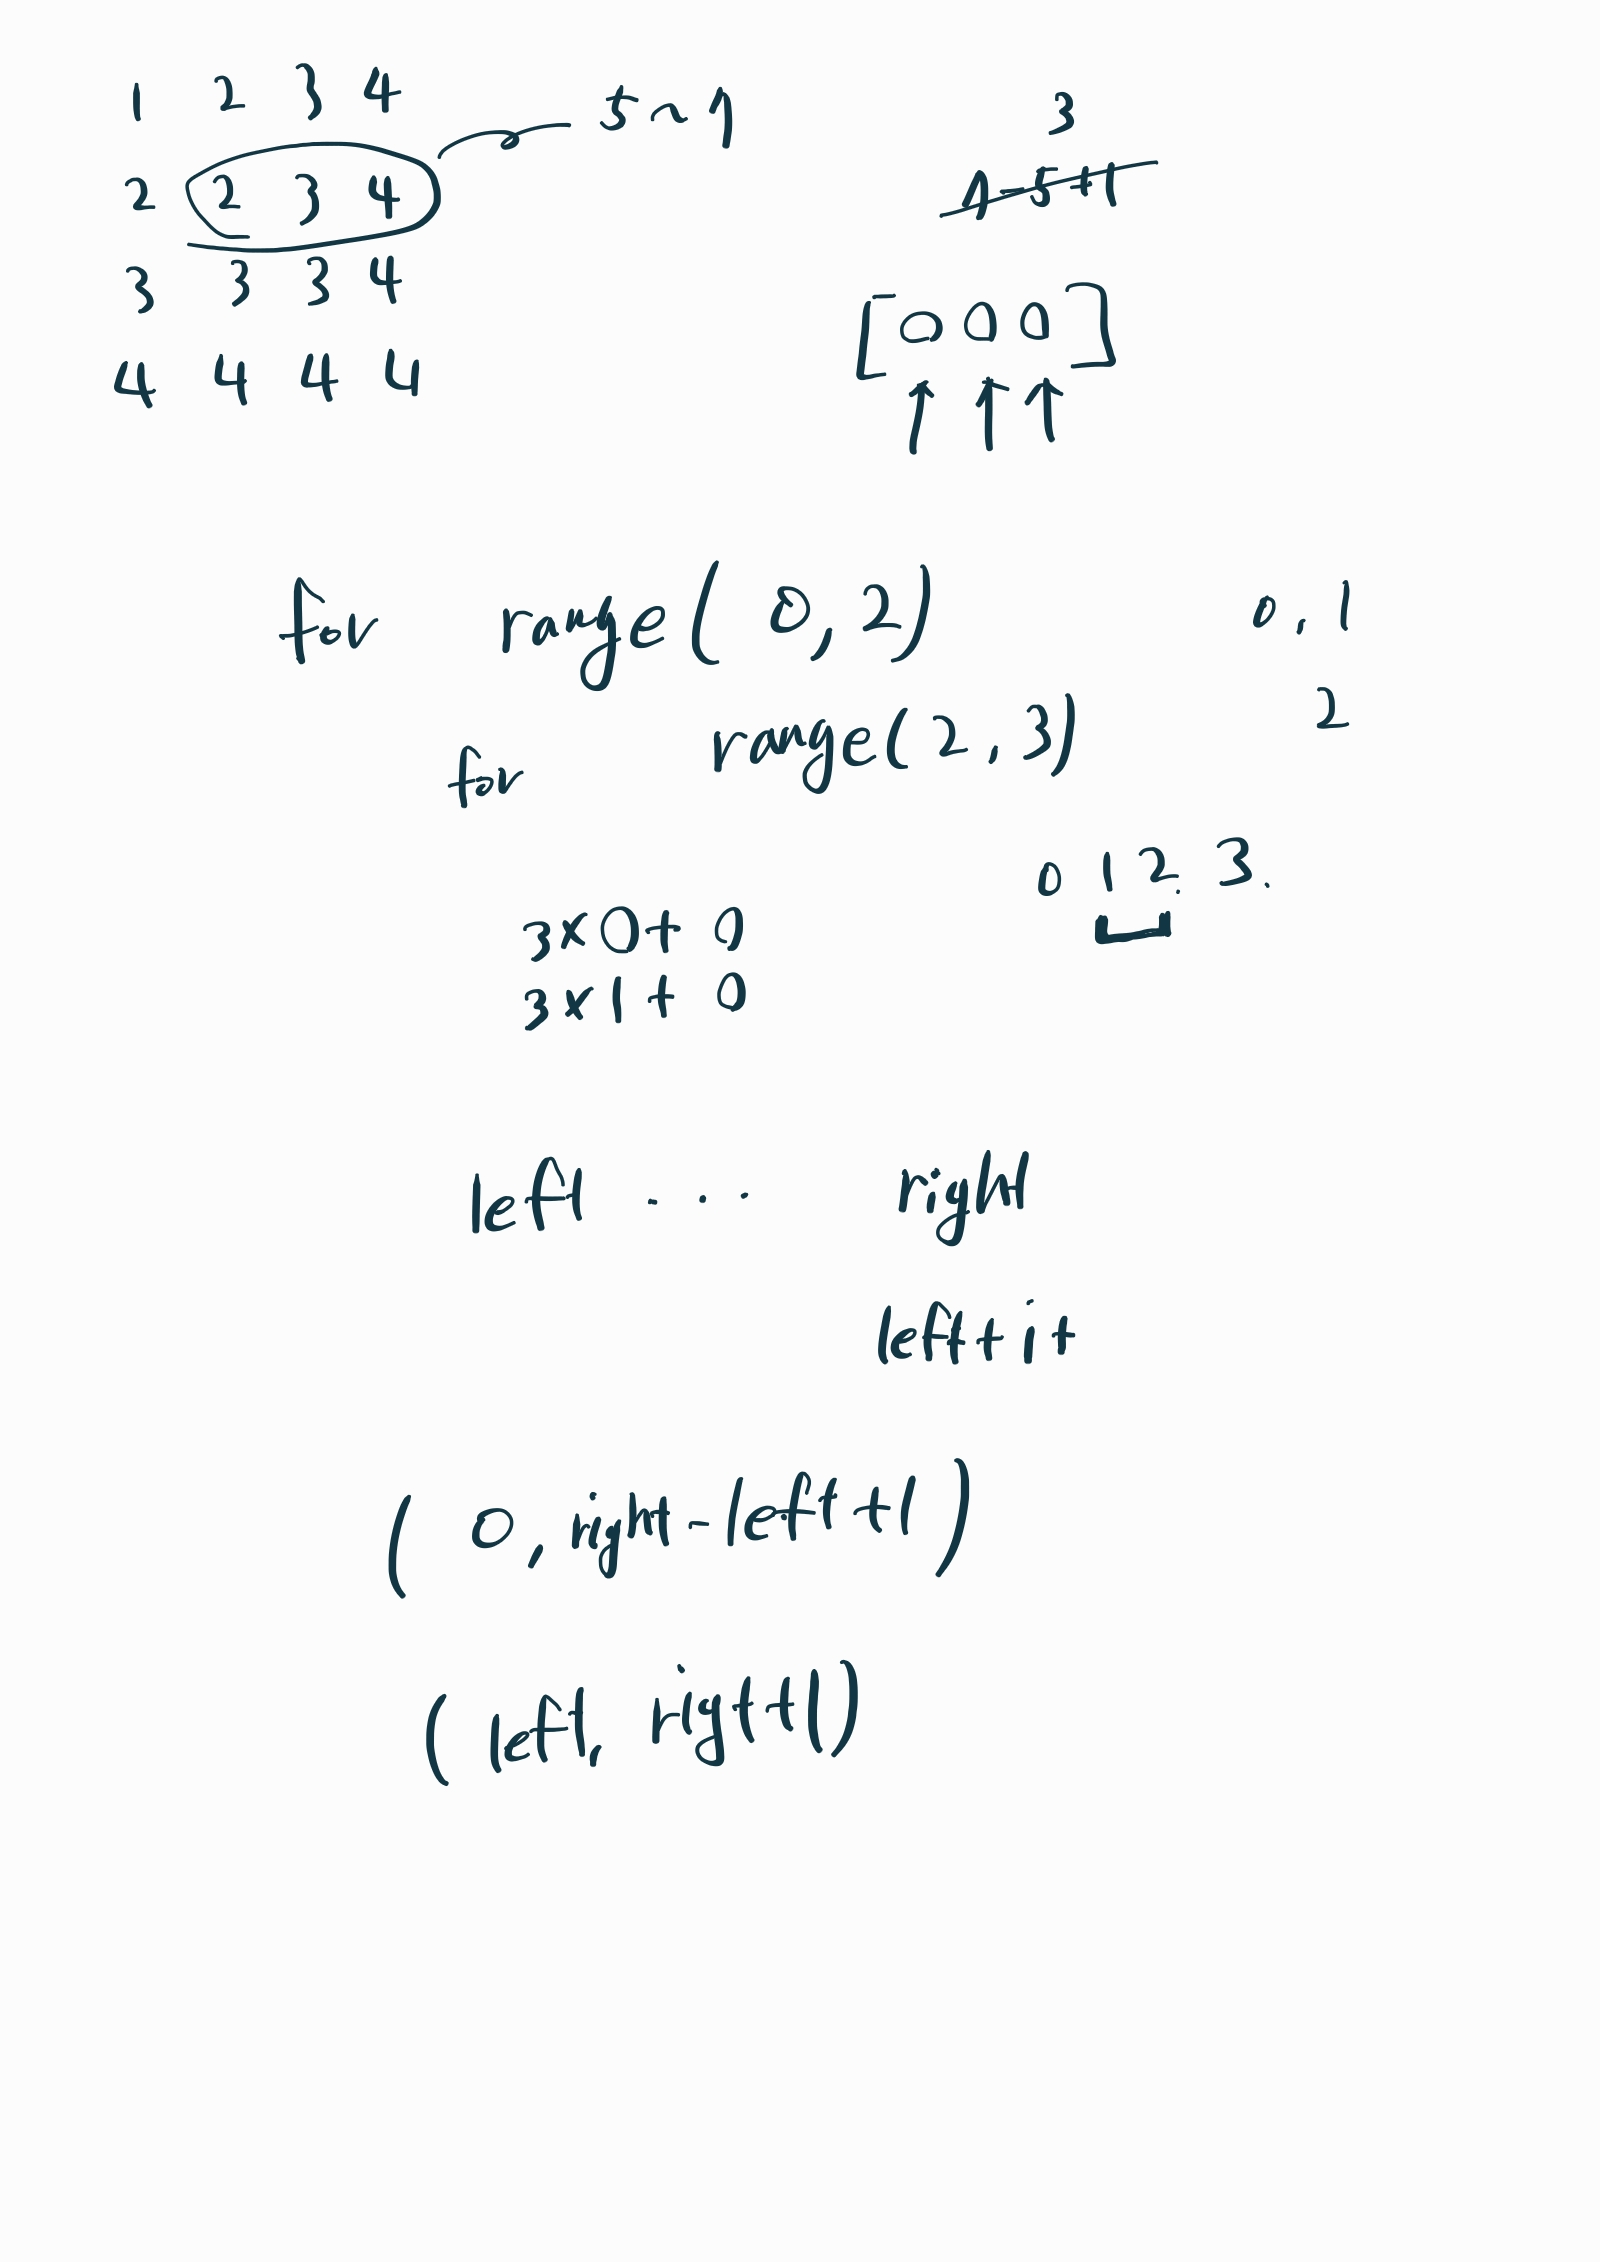 1 2 3 4
5 ~ 7
3
2 2 3 4
7-5+1
3 3 3 4
[0 0 0]
4 4 4 4
for range(0,2)
0, 1
for range(2,3)
2
0 1 2. 3.
3x0+ 0
3x1+ 0
left ... right
left+i+
(0, right-left+1)
(left, rigt+1)